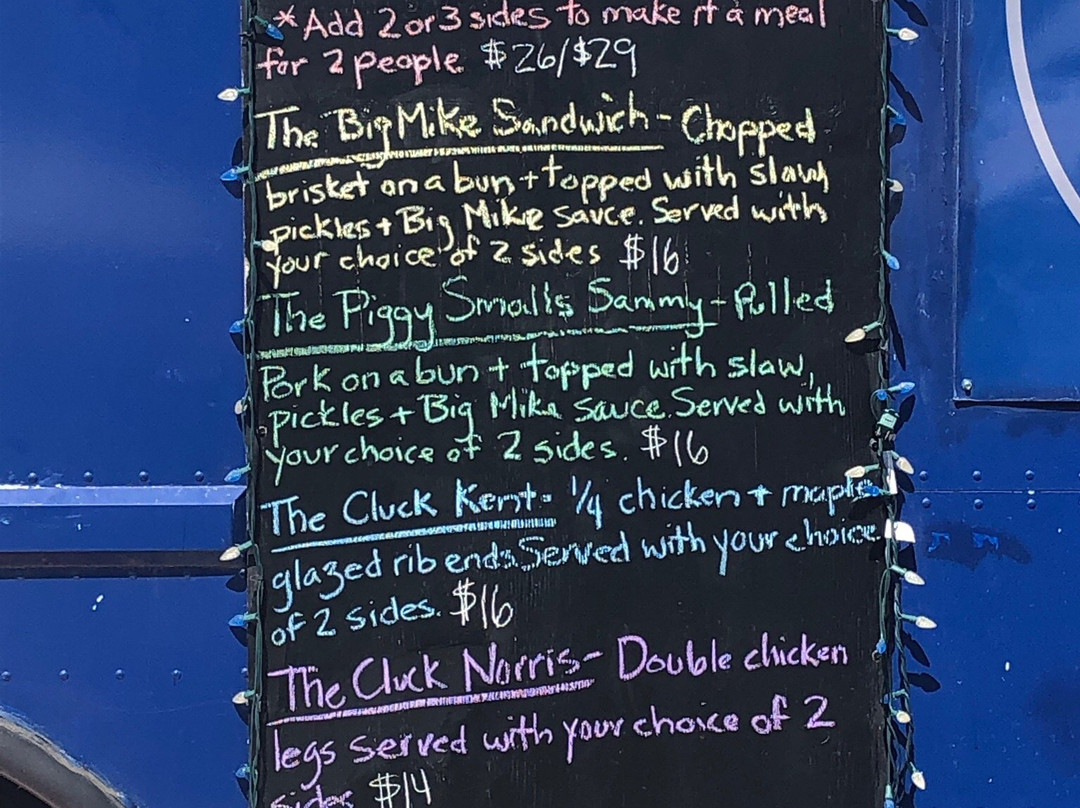 *Add 2 or 3 sides to make it a meal
for 2 people $26/$29
The Big Mike Sandwich - Chopped
brisket on a bun + topped with slaw,
pickles + Big Mike sauce. Served with
your choice of 2 sides $16
The Piggy Smalls Sammy - Pulled
Pork on a bun + topped with slaw,
pickles + Big Mike sauce. Served with
your choice of 2 sides. $16
The Cluck Kent - 1/4 chicken + maple
glazed rib ends. Served with your choice
of 2 sides. $16
The Cluck Norris - Double chicken
legs served with your choice of 2
sides $14